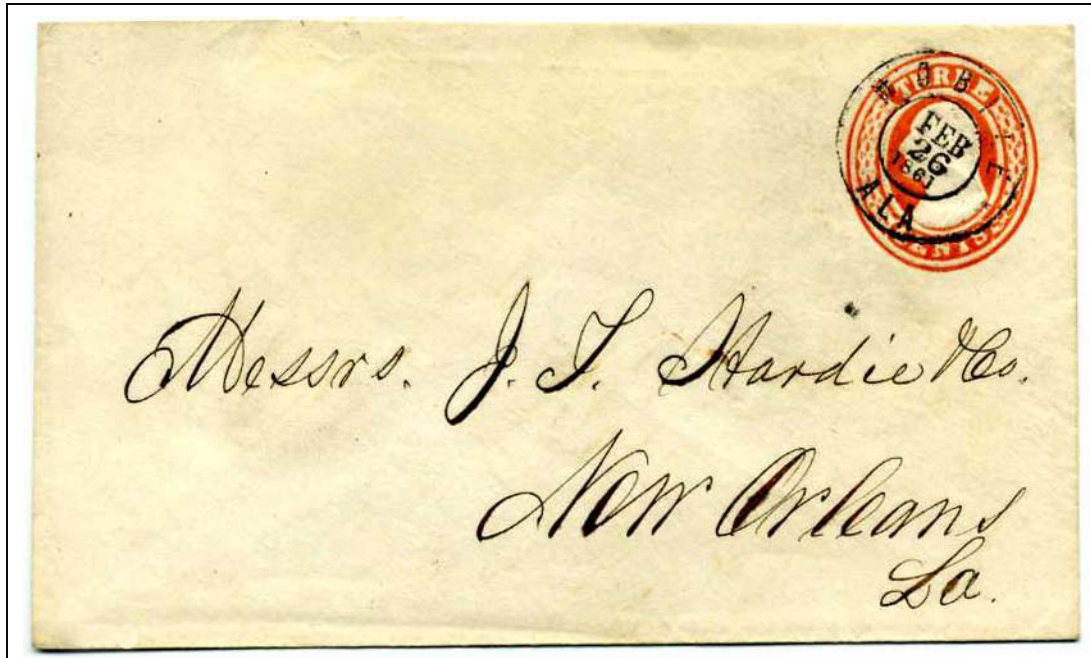 THREE
CENTS
MOBILE
FEB
26
1861
ALA
Messrs. J. T. Hardie & Co.
New Orleans
La.